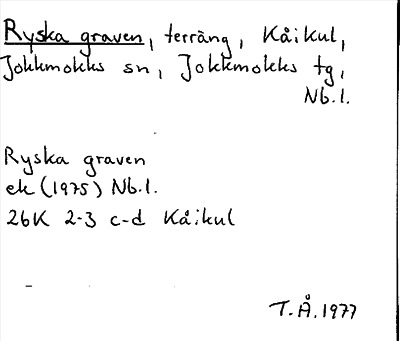 Ryska graven, terräng, Kåikul,
Jokkmokks sn, Jokkmokks tg,
Nb.l.
Ryska graven
ek (1975) Nb.l.
26K 2-3 c-d Kåikul
T.Å.1977